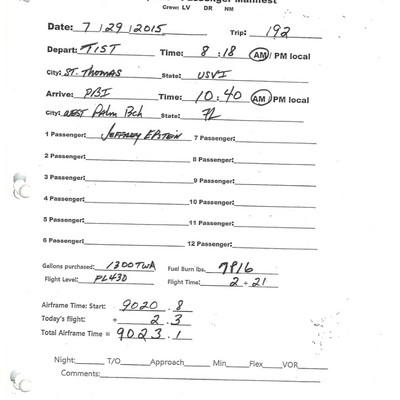 Passenger Manifest
Crew: LV DR NM
Date: 7 / 29 / 2015 Trip: 192
Depart: TIST Time: 8 : 18 AM / PM local
City: ST. Thomas State: USVI
Arrive: PBI Time: 10 : 40 AM / PM local
City: West Palm Bch State: FL
1 Passenger: Jeffrey Epstein 7 Passenger:
2 Passenger: 8 Passenger:
3 Passenger: 9 Passenger:
4 Passenger: 10 Passenger:
5 Passenger: 11 Passenger:
6 Passenger: 12 Passenger:
Gallons purchased: 1300TWA Fuel Burn lbs. 7916
Flight Level: FL430 Flight Time: 2 + 21
Airframe Time: Start: 9020 . 8
Today's flight: + 2 . 3
Total Airframe Time = 9023 . 1
Night: T/O Approach Min Flex VOR
Comments: